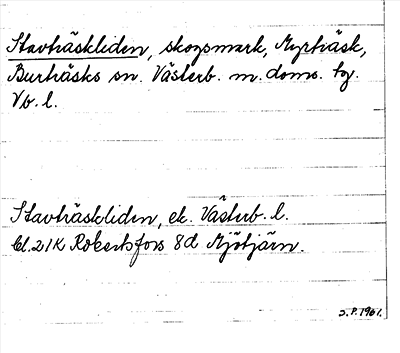 Stavträskliden, skogsmark, Myrträsk,
Burträsks sn. Västerb. m. doms. tg.
Vb. l.
Stavträskliden, ek. Västerb. l.
Bl. 21K Robertsfors 8d Mjötjärn.
S.P. 1961.